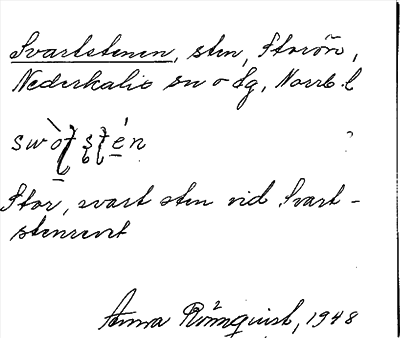 Svartstenen, sten, Storön,
Nederkalix sn o tg, Norrb. l
Stor, svart sten vid Svart-
stensrevet
Anna Rönnquist, 1948